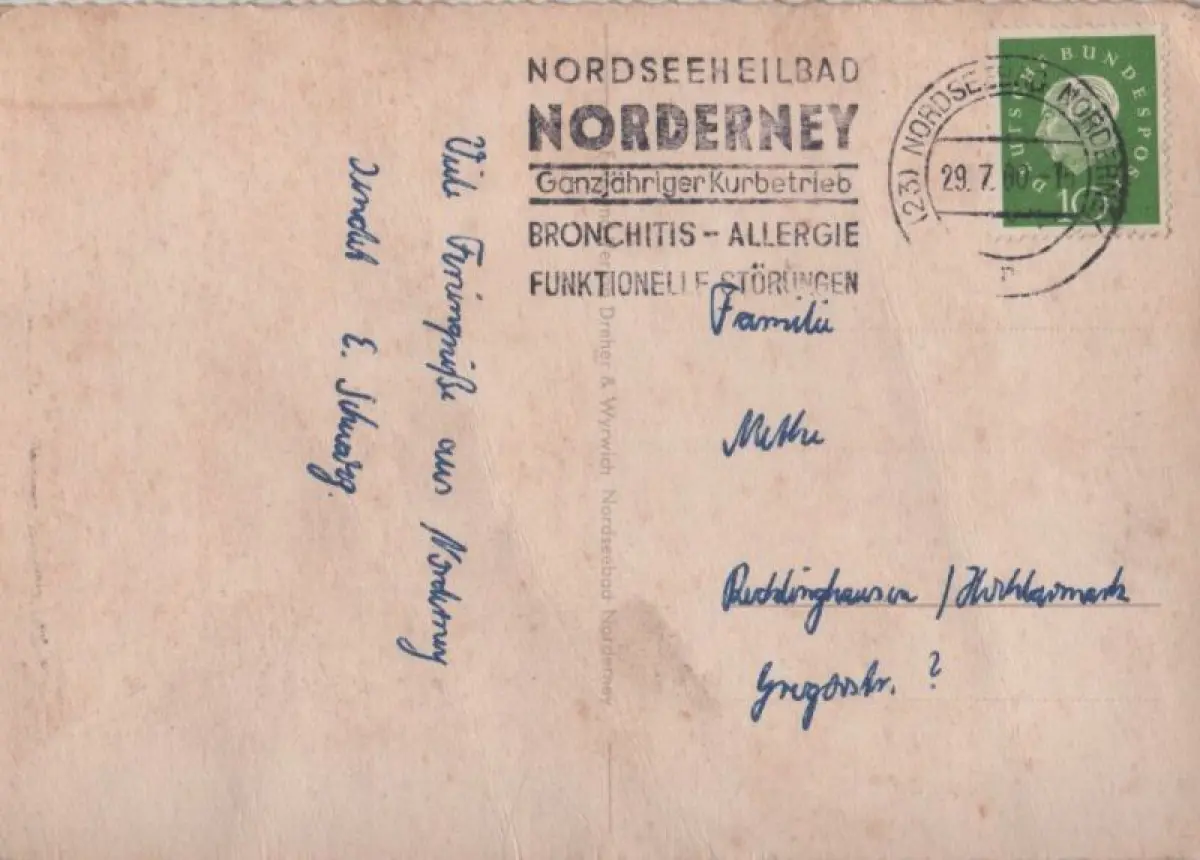 NORDSEEHEILBAD
NORDERNEY
Ganzjähriger Kurbetrieb
BRONCHITIS - ALLERGIE
FUNKTIONELLE STÖRUNGEN
(23) NORDSEEBAD NORDERNEY
29. 7. 60
DEUTSCHE BUNDESPOST
10
Viele Feriengrüße aus Norderney
sendet E. Schwarz.
Dreher & Wyrwich Nordseebad Norderney
Familie
Recklinghausen / Hochlarmark
Gregorstr. ?